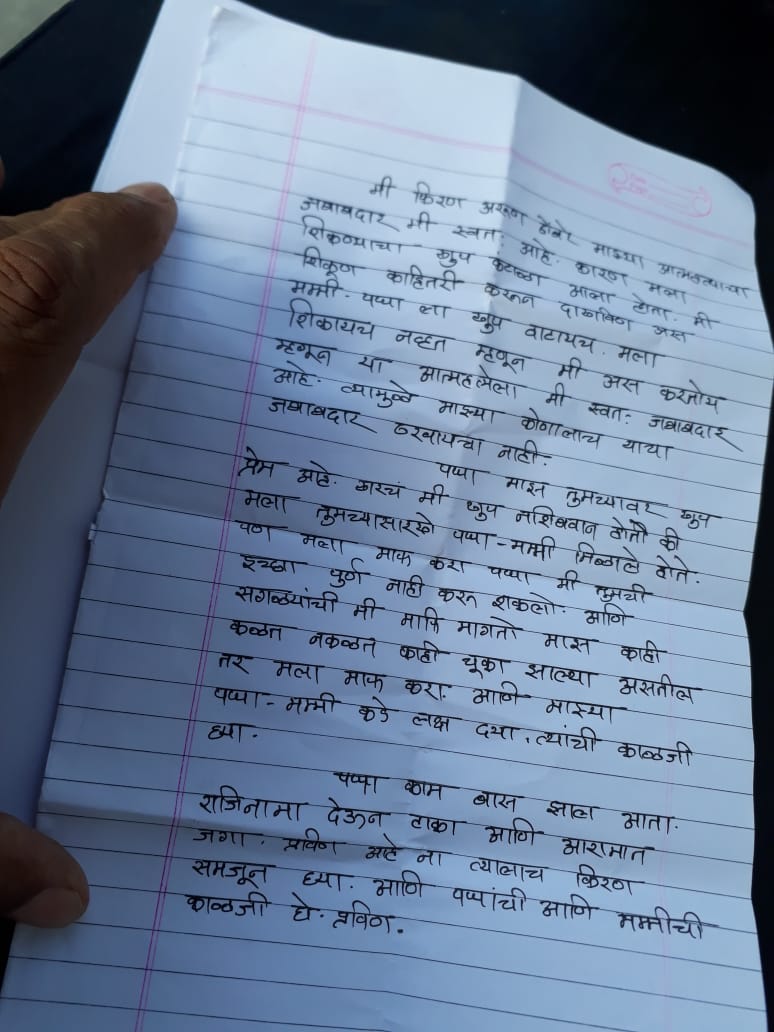 मी किरण अरुण ढोबरे माझ्या आत्महत्याचा
जबाबदार मी स्वतः आहे. कारण मला
शिकण्याचा खुप कंटाळा आला होता. मी
शिकुण काहितरी करून दाखविण अस
मम्मी-पप्पा ला खुप वाटायच. मला
शिकायच नव्हत म्हणून मी अस करतोय
म्हणून या आत्महत्तेला मी स्वतः जबाबदार
आहे. त्यामुळे माझ्या कोणालाच याचा
जबाबदार ठरवायचा नाही.
पप्पा माझ तुमच्यावर खुप
प्रेम आहे. खरचं मी खुप नशिबवान होतो की
मला तुमच्यासारखे पप्पा-मम्मी मिळाले होते.
पण मला माफ करा पप्पा मी तुमची
इच्छा पुर्ण नाही करू शकलो. आणि
सगळ्यांची मी माफि मागतो मास काही
कळत नकळत काही चूका झाल्या असतील
तर मला माफ करा. आणि माझ्या
पप्पा-मम्मी कडे लक्ष दया. त्यांची काळजी
घ्या.
पप्पा काम बास झाल आता.
राजिनामा देऊन टाका आणि आरामात
जगा. प्रविण आहे ना त्यालाच किरण
समजून घ्या. आणि पप्पांची आणि मम्मीची
काळजी घे. प्रविण.